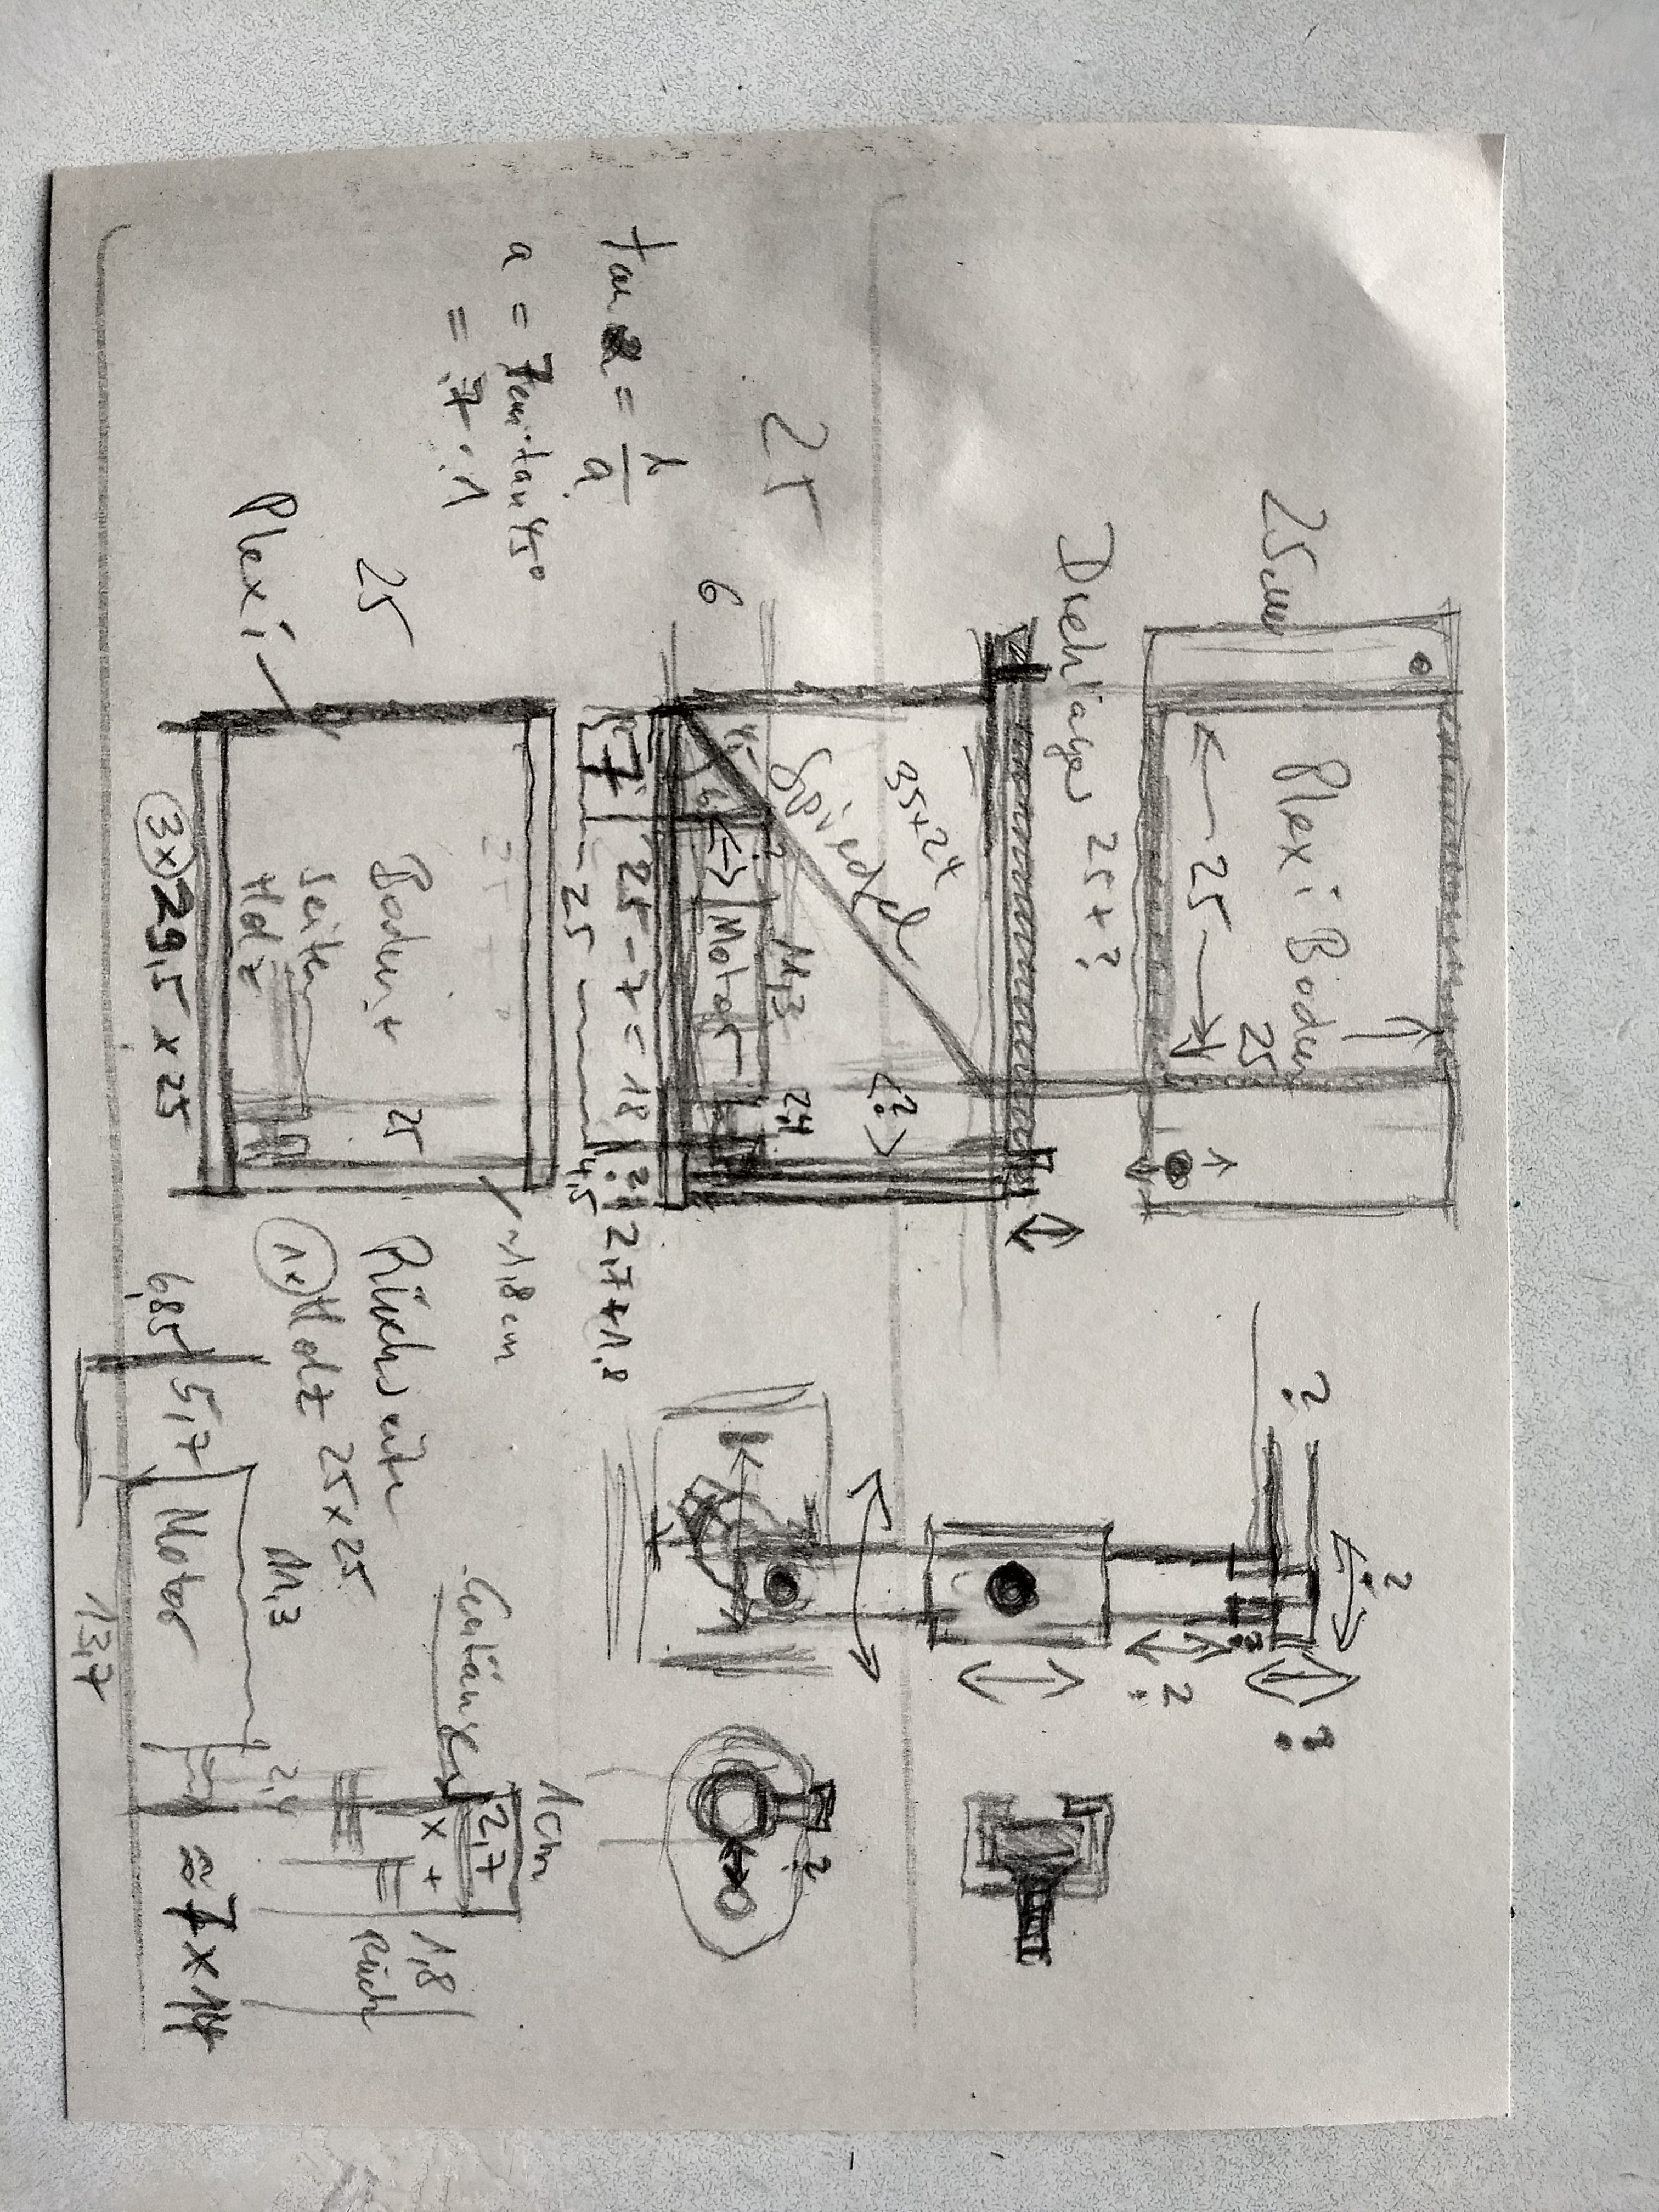 25cm
Plexi Boden
25
25
25+?
35x24
Spiegel
45°
11,3
2,4
?
Motor
6
25
7
25-7=18
2,7+1,8
25
4,5
tan α =
a = 7cm · tan 45°
= 7 · 1
25
Plexi
Boden +
Seiten
Holz
25
3x 29,5 x 25
~1,8cm
Rückseite
1x Holz 25x25
?
?
?
?
?
?
1cm
2,7
x +
1,8
Rück
6,85
5,7
Motor
11,3
2,4
13,7
≈ 7x14